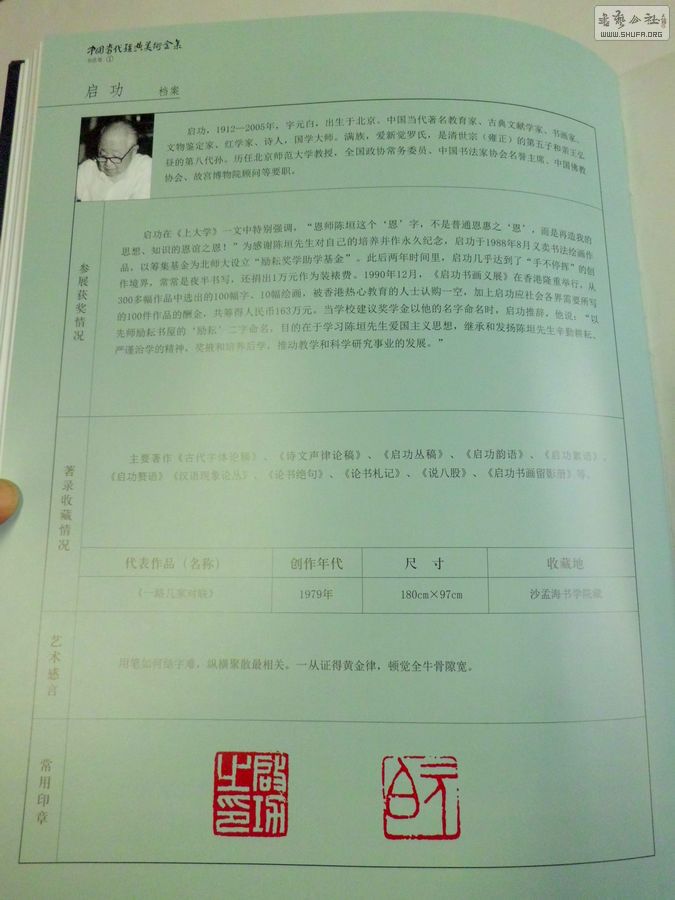 书艺公社
WWW.SHUFA.ORG
中国当代经典美术全集
书法卷 ①
启 功 档案
启功，1912—2005年，字元白，出生于北京。中国当代著名教育家、古典文献学家、书画家、
文物鉴定家、红学家、诗人，国学大师。满族，爱新觉罗氏，是清世宗（雍正）的第五子和亲王弘
昼的第八代孙。历任北京师范大学教授、全国政协常务委员、中国书法家协会名誉主席、中国佛教
协会、故宫博物院顾问等要职。
参展获奖情况
启功在《上大学》一文中特别强调，“恩师陈垣这个‘恩’字，不是普通恩惠之‘恩’，而是再造我的
思想、知识的恩谊之恩！”为感谢陈垣先生对自己的培养并作永久纪念，启功于1988年8月义卖书法绘画作
品，以筹集基金为北师大设立“励耘奖学助学基金”。此后两年时间里，启功几乎达到了“手不停挥”的创
作境界，常常是夜半书写，还捐出1万元作为装裱费。1990年12月，《启功书画义展》在香港隆重举行，从
300多幅作品中选出的100幅字、10幅绘画，被香港热心教育的人士认购一空，加上启功应社会各界需要所写
的100件作品的酬金，共筹得人民币163万元。当学校建议奖学金以他的名字命名时，启功推辞，他说：“以
先师励耘书屋的‘励耘’二字命名，目的在于学习陈垣先生爱国主义思想，继承和发扬陈垣先生辛勤耕耘、
严谨治学的精神，奖掖和培养后学，推动教学和科学研究事业的发展。”
著录收藏情况
主要著作《古代字体论稿》、《诗文声律论稿》、《启功丛稿》、《启功韵语》、《启功絮语》、
《启功赘语》《汉语现象论丛》、《论书绝句》、《论书札记》、《说八股》、《启功书画留影册》等。
代表作品（名称） 创作年代 尺 寸 收藏地
《一路几家对联》 1979年 180cm×97cm 沙孟海书学院藏
艺术感言
用笔如何结字难，纵横聚散最相关。一从证得黄金律，顿觉全牛骨隙宽。
常用印章
启功之印
元白